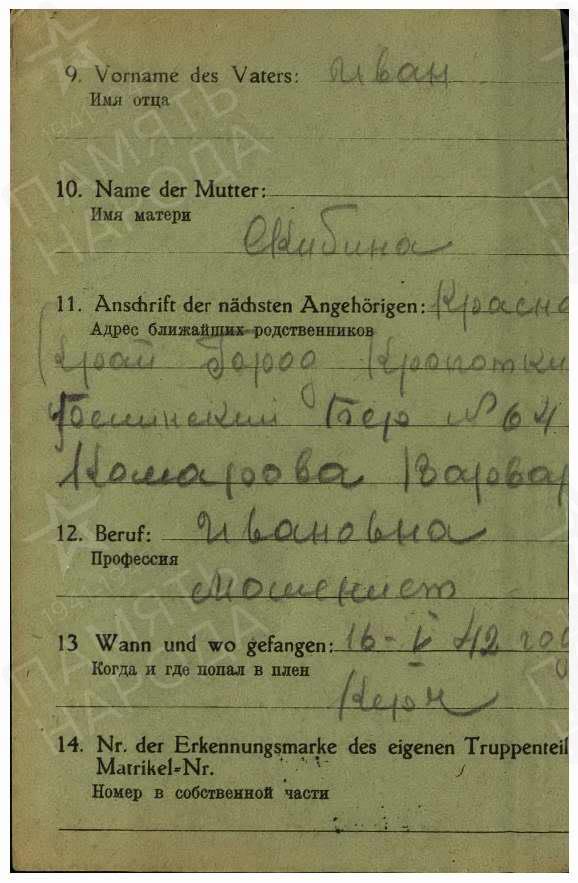 9. Vorname des Vaters: Иван
Имя отца
10. Name der Mutter:
Имя матери
Скибина
11. Anschrift der nächsten Angehörigen: Красно
Адрес ближайших родственников
Край Город Кропотки
Пер № 64
Комарова Варвар
12. Beruf: Ивановна
Профессия
13 Wann und wo gefangen: 16-V 42 год
Когда и где попал в плен
Керч
14. Nr. der Erkennungsmarke des eigenen Truppenteil
Matrikel-Nr.
Номер в собственной части
ПАМЯТЬ
НАРОДА